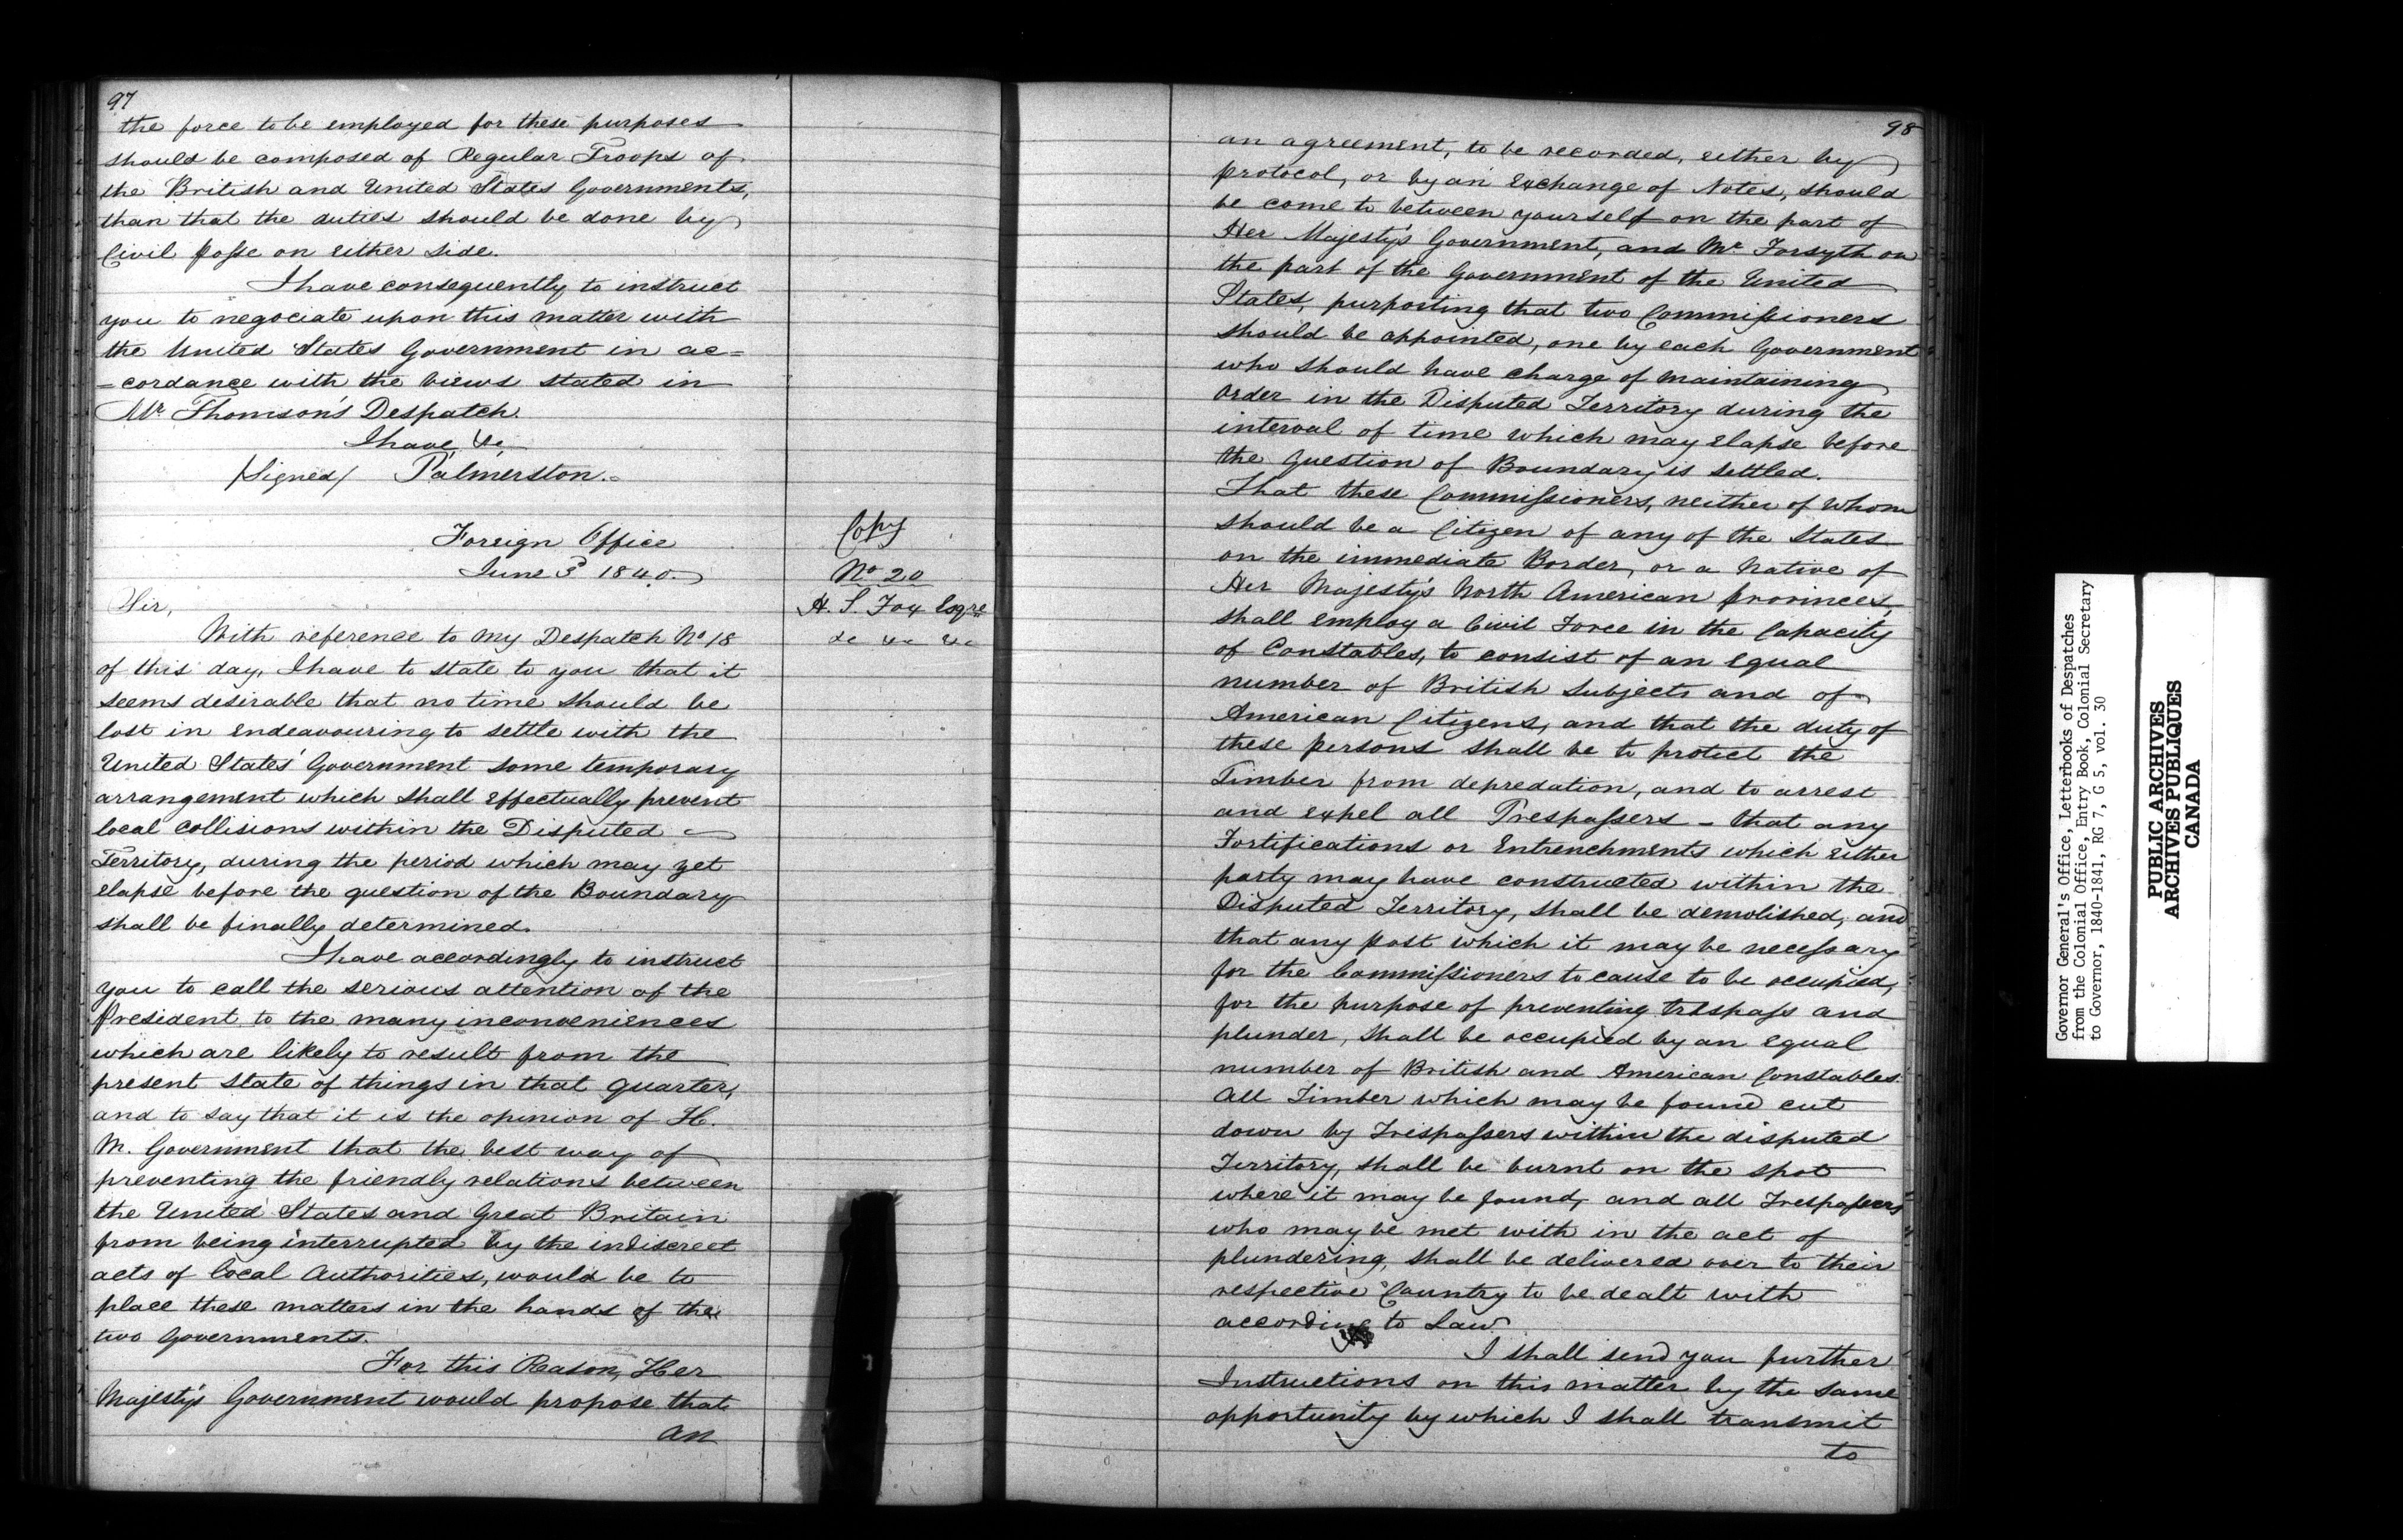 97
the force to be employed for these purposes
should be composed of Regular Troops of
the British and United States Governments,
than that the duties should be done by
Civil posse on either side.
I have consequently to instruct
you to negociate upon this matter with
the United States Government in ac=
=cordance with the views stated in
Mr. Thomson's Despatch.
I have &c
/Signed/ Palmerston.
Foreign Office
June 3d 1840.
Copy
No 20
H. S. Fox Esqre
&c &c &c
Sir,
With reference to my Despatch No 18
of this day, I have to state to you that it
seems desirable that no time should be
lost in endeavouring to settle with the
United States' Government some temporary
arrangement which shall effectually prevent
local collisions within the Disputed
Territory, during the period which may yet
elapse before the question of the Boundary
shall be finally determined.
I have accordingly to instruct
you to call the serious attention of the
President to the many inconveniences
which are likely to result from the
present state of things in that quarter,
and to say that it is the opinion of H.
M. Government that the best way of
preventing the friendly relations between
the United States and Great Britain
from being interrupted by the indiscreet
acts of local Authorities, would be to
place these matters in the hands of the
two Governments.
For this Reason, Her
Majesty's Government would propose that
an
98
an agreement, to be recorded, either by
protocol, or by an exchange of Notes, should
be come to between yourself on the part of
Her Majesty's Government, and Mr. Forsyth on
the part of the Government of the United
States, purporting that two Commissioners
should be appointed, one by each Government
who should have charge of maintaining
order in the Disputed Territory during the
interval of time which may elapse before
the question of Boundary is settled.
That these Commissioners, neither of whom
should be a Citizen of any of the States
on the immediate Border, or a Native of
Her Majesty's North American provinces,
shall employ a Civil Force in the Capacity
of Constables, to consist of an equal
number of British subjects and of
American Citizens, and that the duty of
these persons shall be to protect the
Timber from depredation, and to arrest
and expel all Trespassers – that any
Fortifications or Entrenchments which either
party may have constructed within the
Disputed Territory, shall be demolished, and
that any post which it may be necessary
for the Commissioners to cause to be occupied,
for the purpose of preventing trespass and
plunder, shall be occupied by an equal
number of British and American Constables.
All Timber which may be found cut
down by Trespassers within the disputed
Territory, shall be burnt on the spot
where it may be found, and all Trespassers
who may be met with in the act of
plundering, shall be delivered over to their
respective Country to be dealt with
according to Law.
I shall send you further
Instructions on this matter by the same
opportunity by which I shall transmit
to
Governor General's Office, Letterbooks of Despatches
from the Colonial Office, Entry Book, Colonial Secretary
to Governor, 1840-1841, RG 7, G 5, vol. 30
PUBLIC ARCHIVES
ARCHIVES PUBLIQUES
CANADA